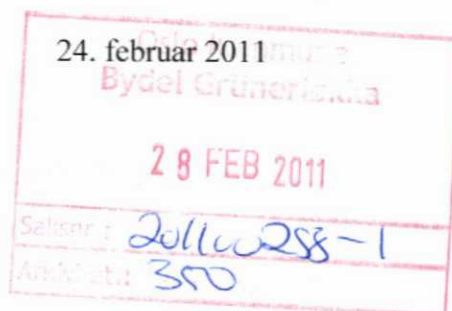 24. februar 2011
Oslo kommune
Bydel Grünerløkka
28 FEB 2011
Saksnr.: 201100258-1
350